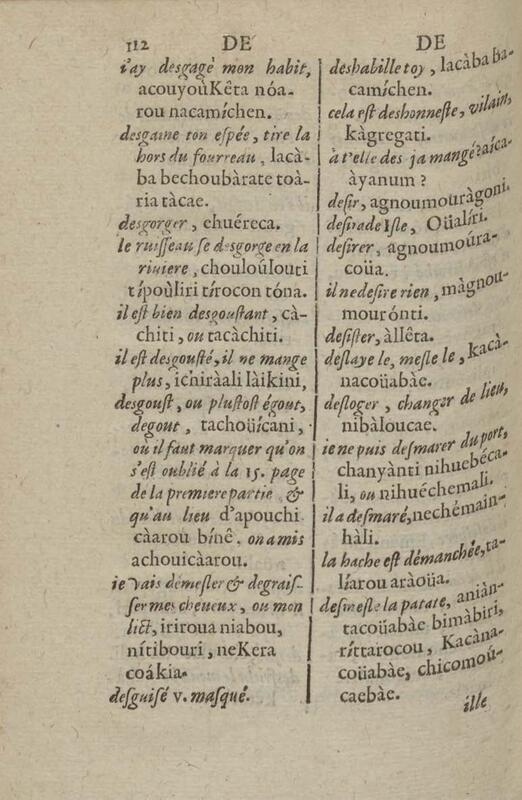 112 DE DE
i'ay desgagè mon habit,
acouyoùKêta nóa-
rou nacamíchen.
desgaine ton espée, tire la
hors du fourreau, lacà-
ba bechoubàrate toà-
ria tàcae.
desgorger, chuéreca.
le ruisseau se desgorge en la
riuiere, chouloúlouti
típoùliri tírocon tóna.
il est bien desgoustant, cà-
chiti, ou tacàchiti.
il est desgousté, il ne mange
plus, ichiràali làikini,
desgoust, ou plustost égout,
degout, tachoüícani,
où il faut marquer qu'on
s'est oublié à la 15. page
de la premiere partie &
qu'au lieu d'apouchi
càarou bínê. on a mis
achouicàarou.
ie vais démesler & degrais-
ser mes cheueux, ou mon
lict, iriroua niabou,
nítibouri, neKera
coákia.
desguisé v. masqué.
deshabille toy, lacàba ba-
camíchen.
cela est deshonneste, vilain,
kàgregati.
à t'elle des-ja mangé? aíca-
àyanum?
desir, agnoumouràgoni.
desirade Isle, Oüalíri.
desirer, agnoumoúra-
coüa.
il ne desire rien, màgnou-
mourónti.
desister, àllêta.
deslaye le, mesle le, kacà-
nacoüabàe.
desloger, changer de lieu,
nibàloucae.
ie ne puis desmarer du port,
chanyànti nihuebéca-
li, ou nihuéchemali.
il a desmaré, nechémain-
hàli.
la hache est démanchée, ta-
líarou araòüa.
desmesle la patate, aniàn-
tacoüabàe bimàbiri,
ríttarocou, Kacàna-
coüabàe, chicomoú-
caebàe.
ille